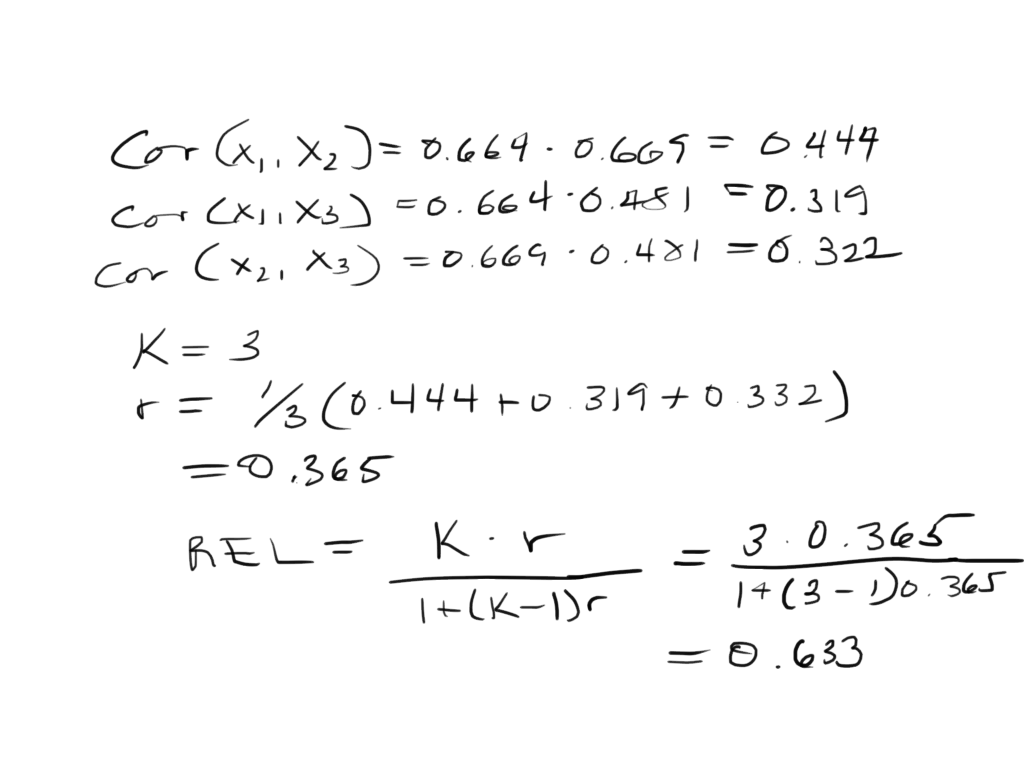 Cor(x₁, x₂) = 0.669 · 0.669 = 0.444
Cor(x₁, x₃) = 0.664 · 0.481 = 0.319
Cor(x₂, x₃) = 0.669 · 0.481 = 0.322
K = 3
r = 1/3 (0.444 + 0.319 + 0.332)
= 0.365
REL = K · r / 1+(K-1)r = 3 · 0.365 / 1+(3-1)0.365
= 0.633